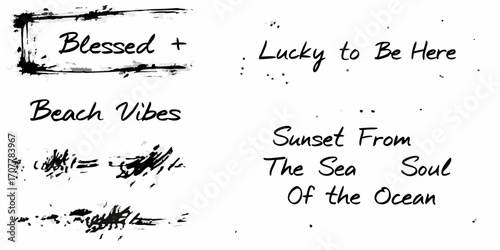 Blessed +
Beach Vibes
=
Lucky to Be Here
Sunset From
The Sea Soul
Of the Ocean
Adobe Stock | #1707783967